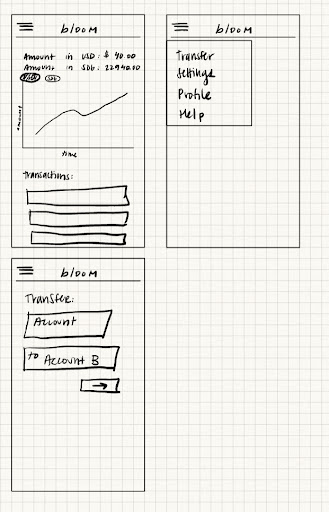 bloom
Amount in USD: $ 40.00
Amount in SDG: 22940.00
SDG
amount
time
Transactions:
bloom
Transfer
Settings
Profile
Help
bloom
Transfer:
Account
to Account B